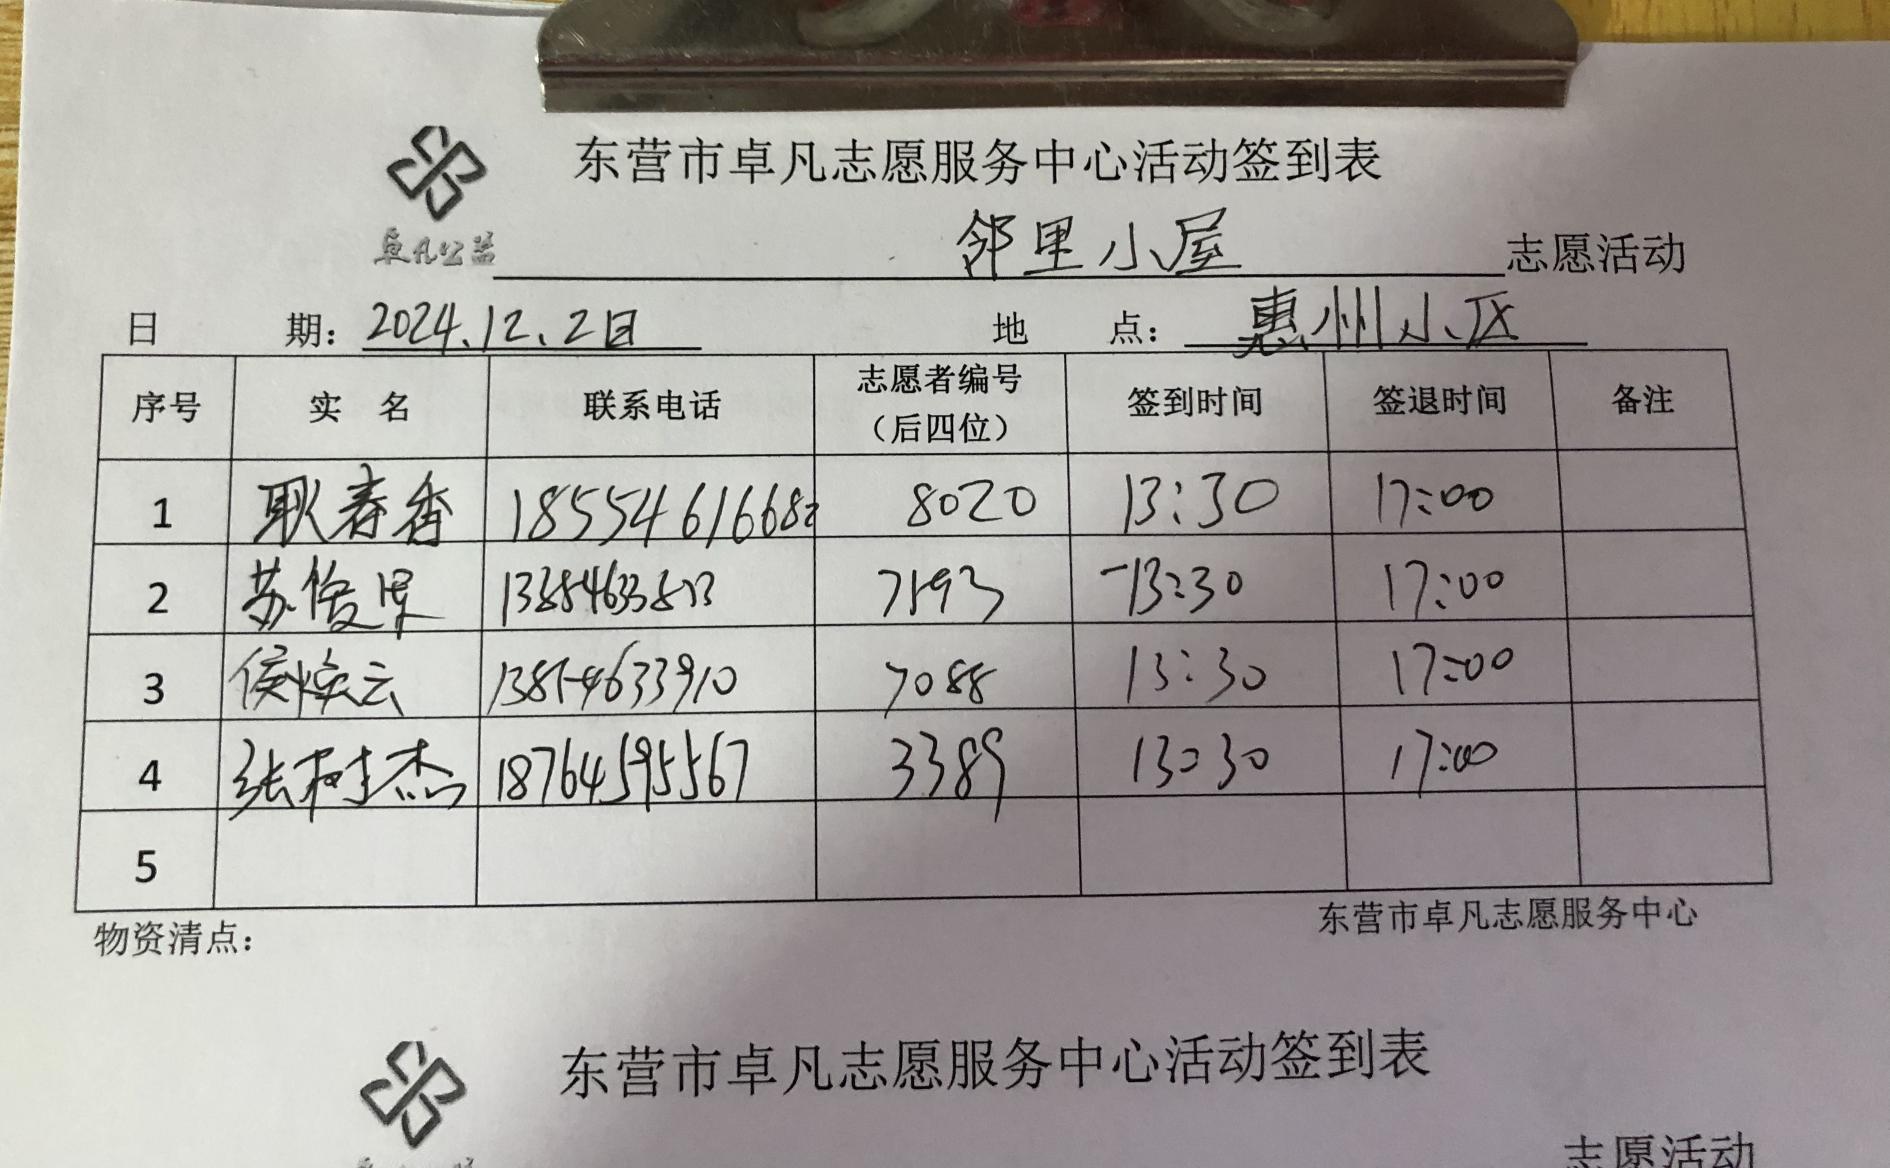 东营市卓凡志愿服务中心活动签到表
卓凡公益
邻里小屋 志愿活动
日 期: 2024.12.2日 地 点: 惠州小区
序号 实 名 联系电话 志愿者编号(后四位) 签到时间 签退时间 备注
1 耿春香 18554616682 8020 13:30 17:00
2 苏俊 7193 13:30 17:00
3 侯焕云 13854633910 7088 13:30 17:00
4 张树杰 18764595567 3389 13:30 17:00
5
物资清点: 东营市卓凡志愿服务中心
东营市卓凡志愿服务中心活动签到表
志愿活动